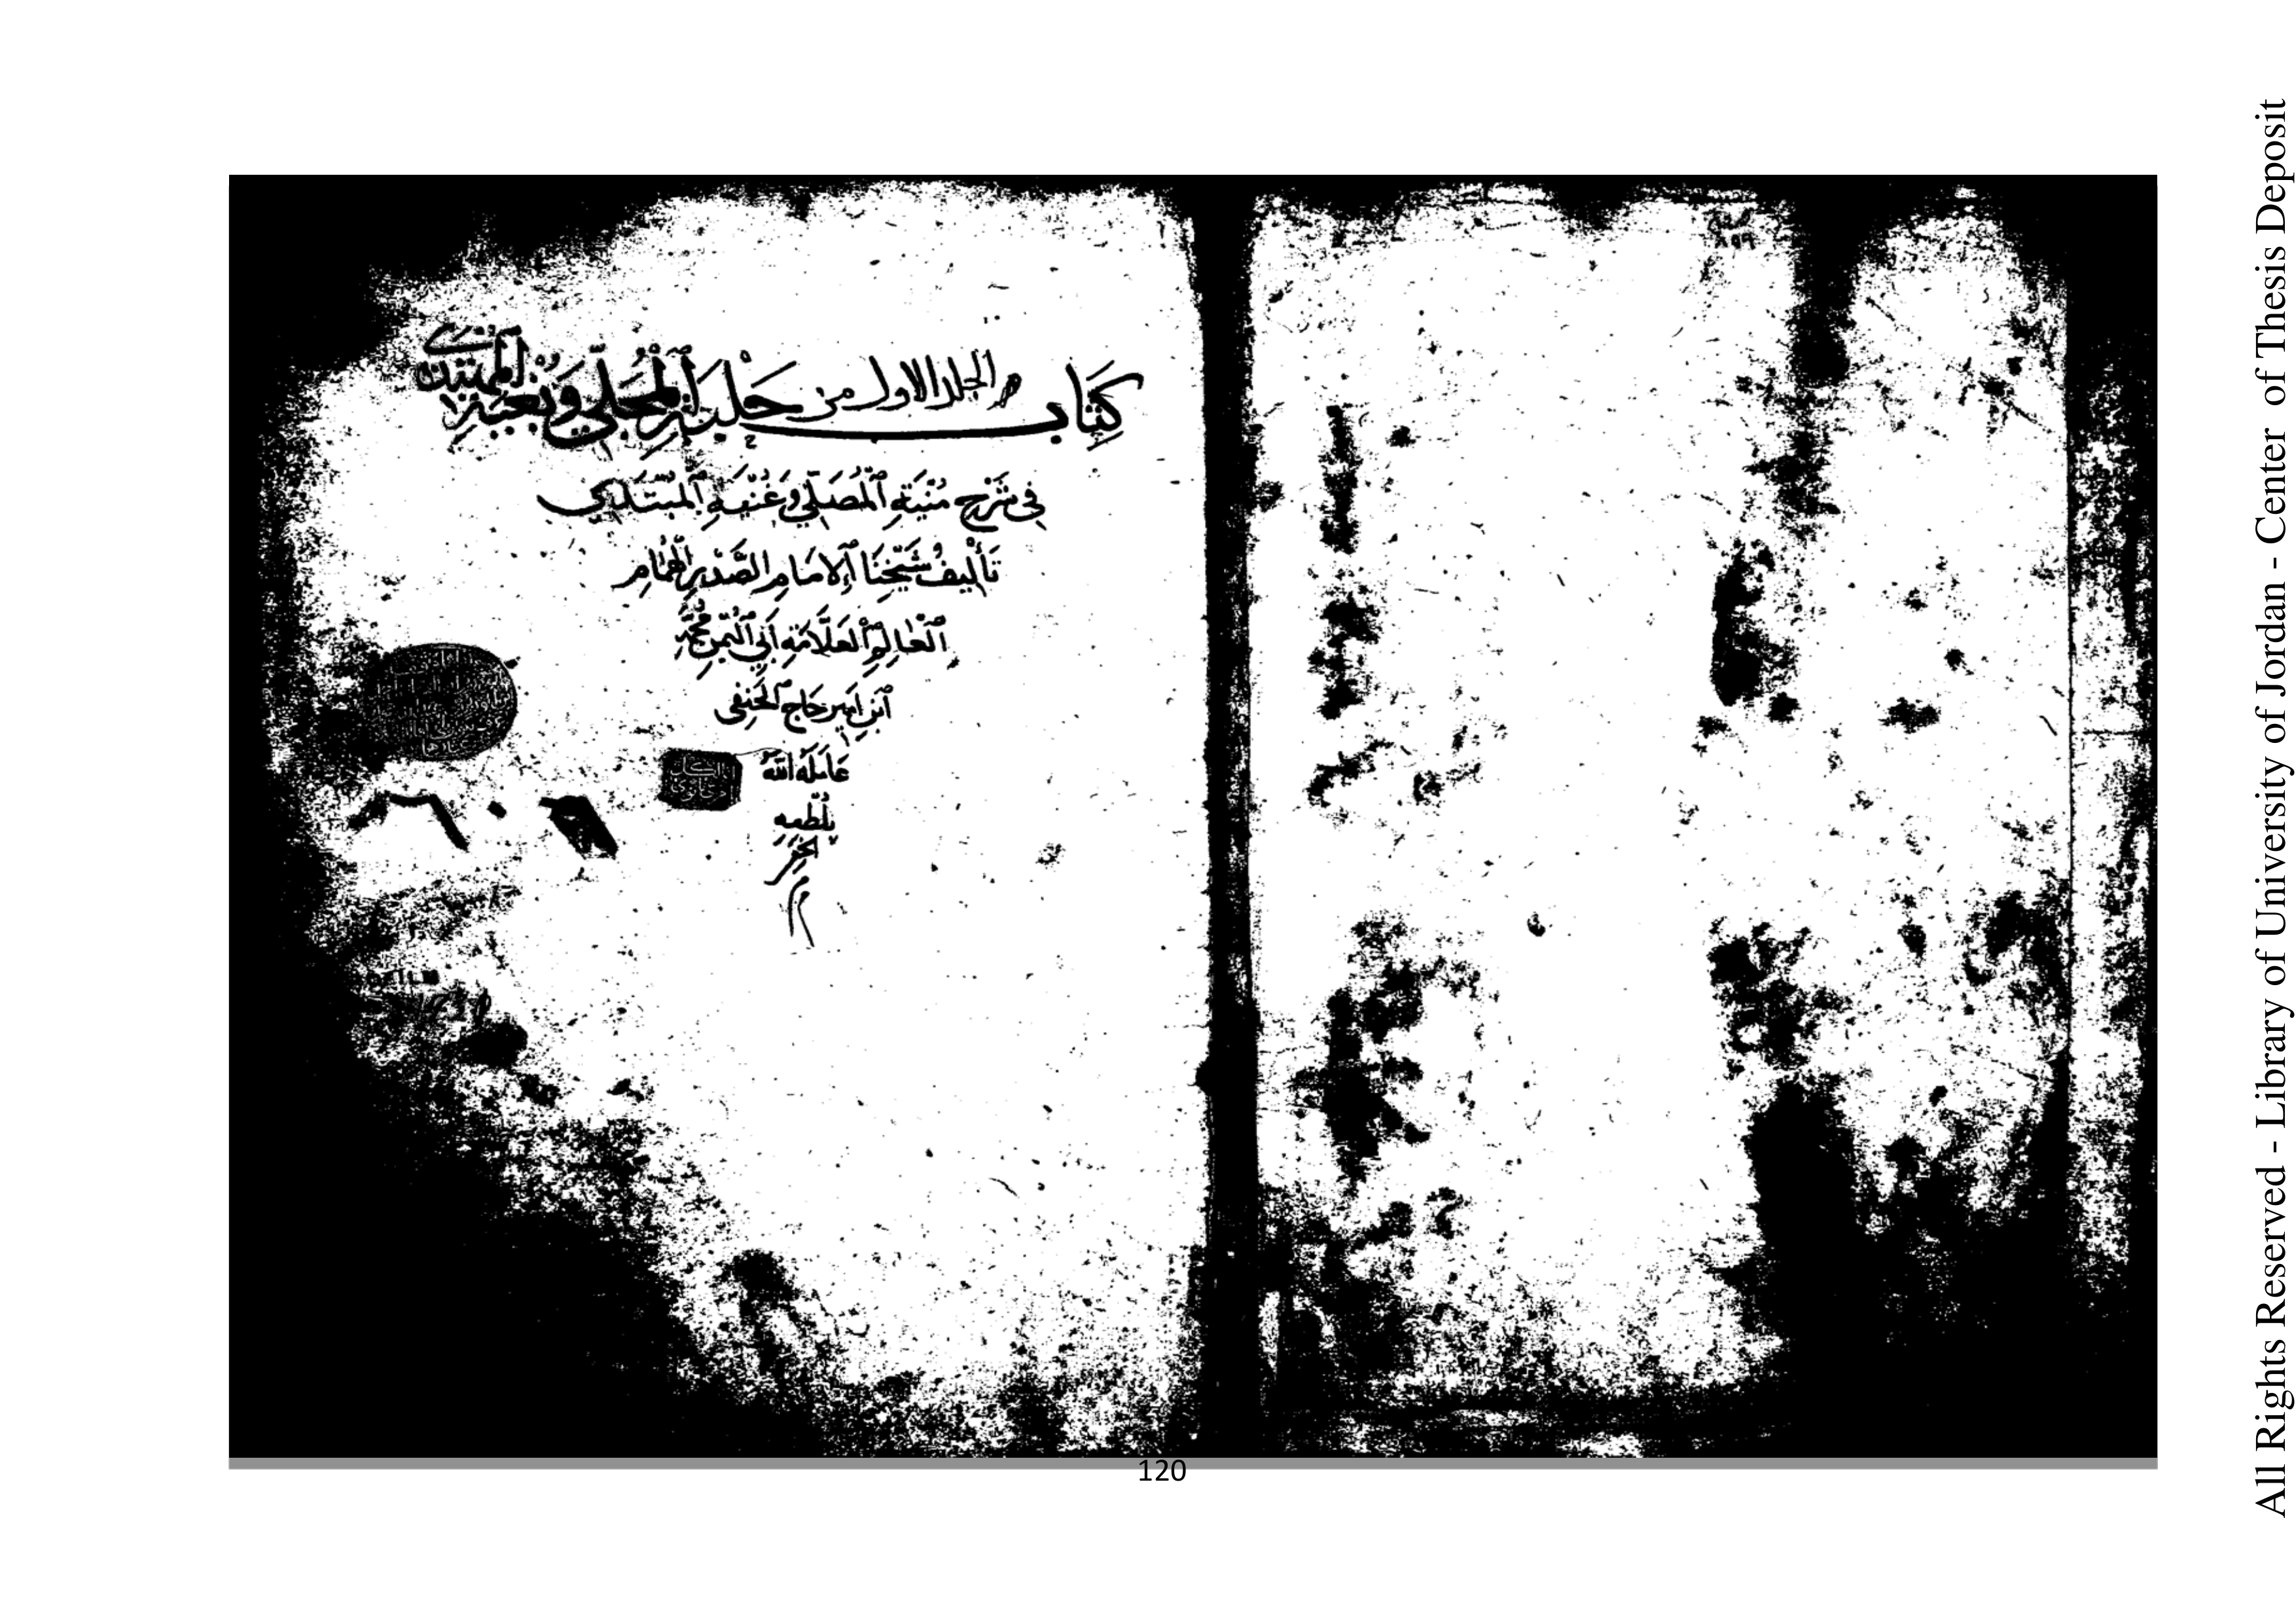 ٨٥٩
كِتَاب المجلد الاول من حَلْبَةِ ٱلْمُجَلِّي وَبُغْيَةِ ٱلْمُهْتَدِي
فِي شَرْحِ مُنْيَةِ ٱلْمُصَلِّي وَغُنْيَةِ ٱلْمُبْتَدِي
تَأْلِيفُ شَيْخِنَا ٱلْإِمَامِ الصَّدْرِ الْهُمَامِ
ٱلْعَالِمِ الْعَلَّامَةِ أَبِي ٱلْيُمْنِ مُحَمَّدِ
ٱبْنِ أَمِيرِ حَاجّ ٱلْحَنَفِي
عَامَلَهُ اللَّهُ
بِلُطْفِهِ
120
All Rights Reserved - Library of University of Jordan - Center of Thesis Deposit